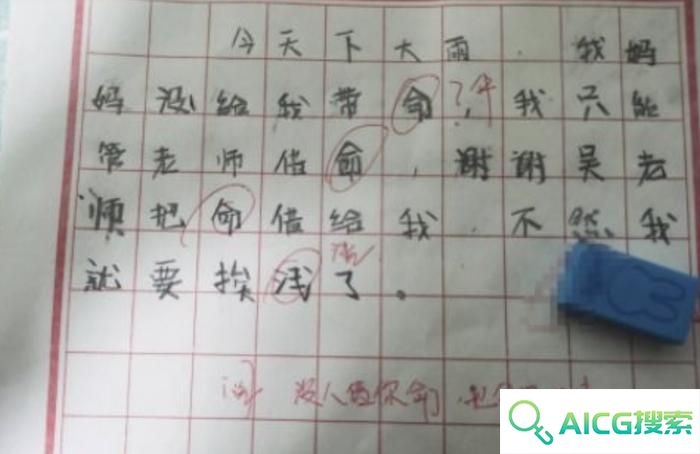 今天下大雨,我妈
妈没给我带命,我只能
管老师借命,谢谢吴老
师把命借给我,不然我
就要挨浅了。
没人借你命
AICG搜索